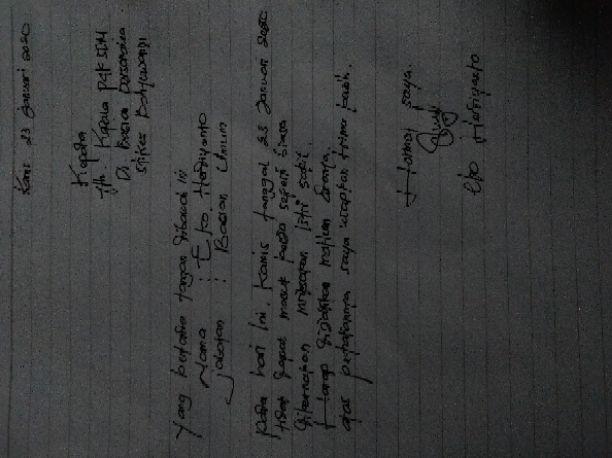 Kamis 23 Januari 2020
Kepada
Yth. Kepala P4K STIM
Di Bagian
STIKES Banyuwangi
Yang bertanda tangan dibawah ini
Nama : Eko Herdiyanto
Jabatan : Bagian Umum
Pada hari ini, Kamis tanggal 23 Januari 2020
tidak dapat masuk kerja seperti biasa
dikarenakan istri sakit.
Harap dijadikan maklum
atas perhatiannya saya ucapkan trima kasih.
Hormat saya.
Eko Herdiyanto